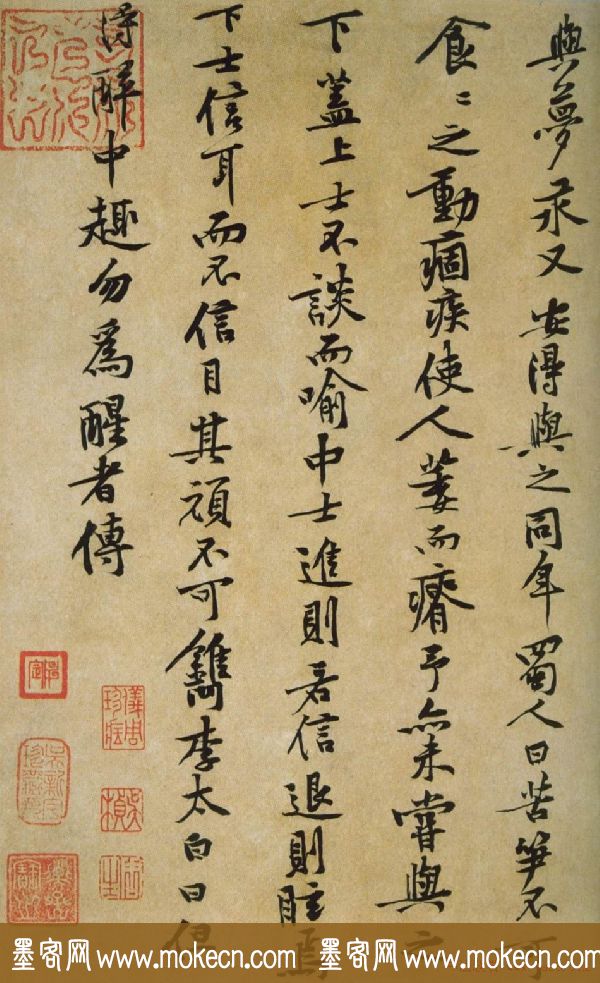 與夢永又安得與之同年蜀人曰苦笋不可
食〻之動痼疾使人萎而瘠予亦未嘗與
下蓋上士不談而喻中士進則若信退則眩焉
下士信耳而不信目其頑不可鐫李太白曰但
得醉中趣勿為醒者傳
墨客网 www.mokecn.com 墨客网 www.mokecn.com